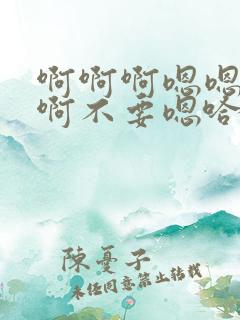 啊啊啊嗯嗯
啊不要嗯哈
陳憂子
未经同意禁止转载